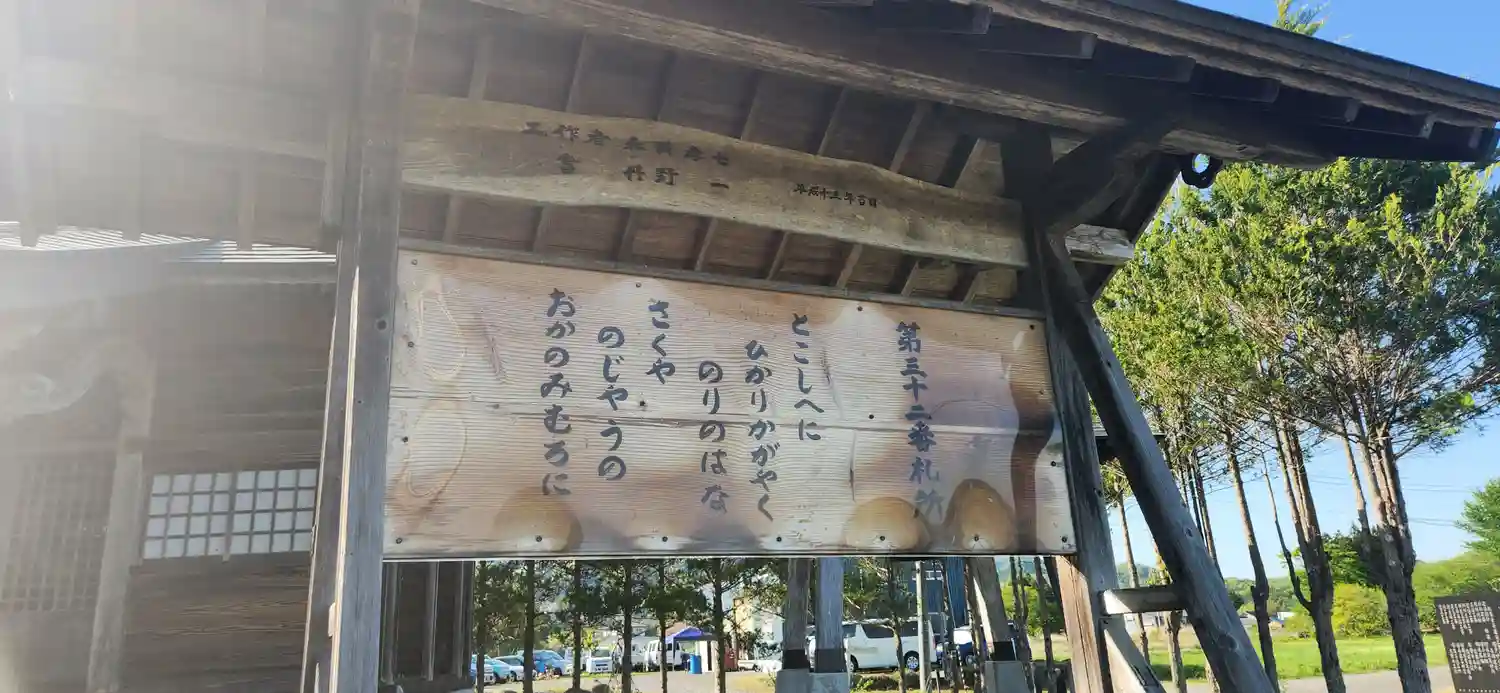 平成十三年吉日
第三十二番札所
とこしへに
ひかりかがやく
のりのはな
さくや
のじやうの
おかのみむろに